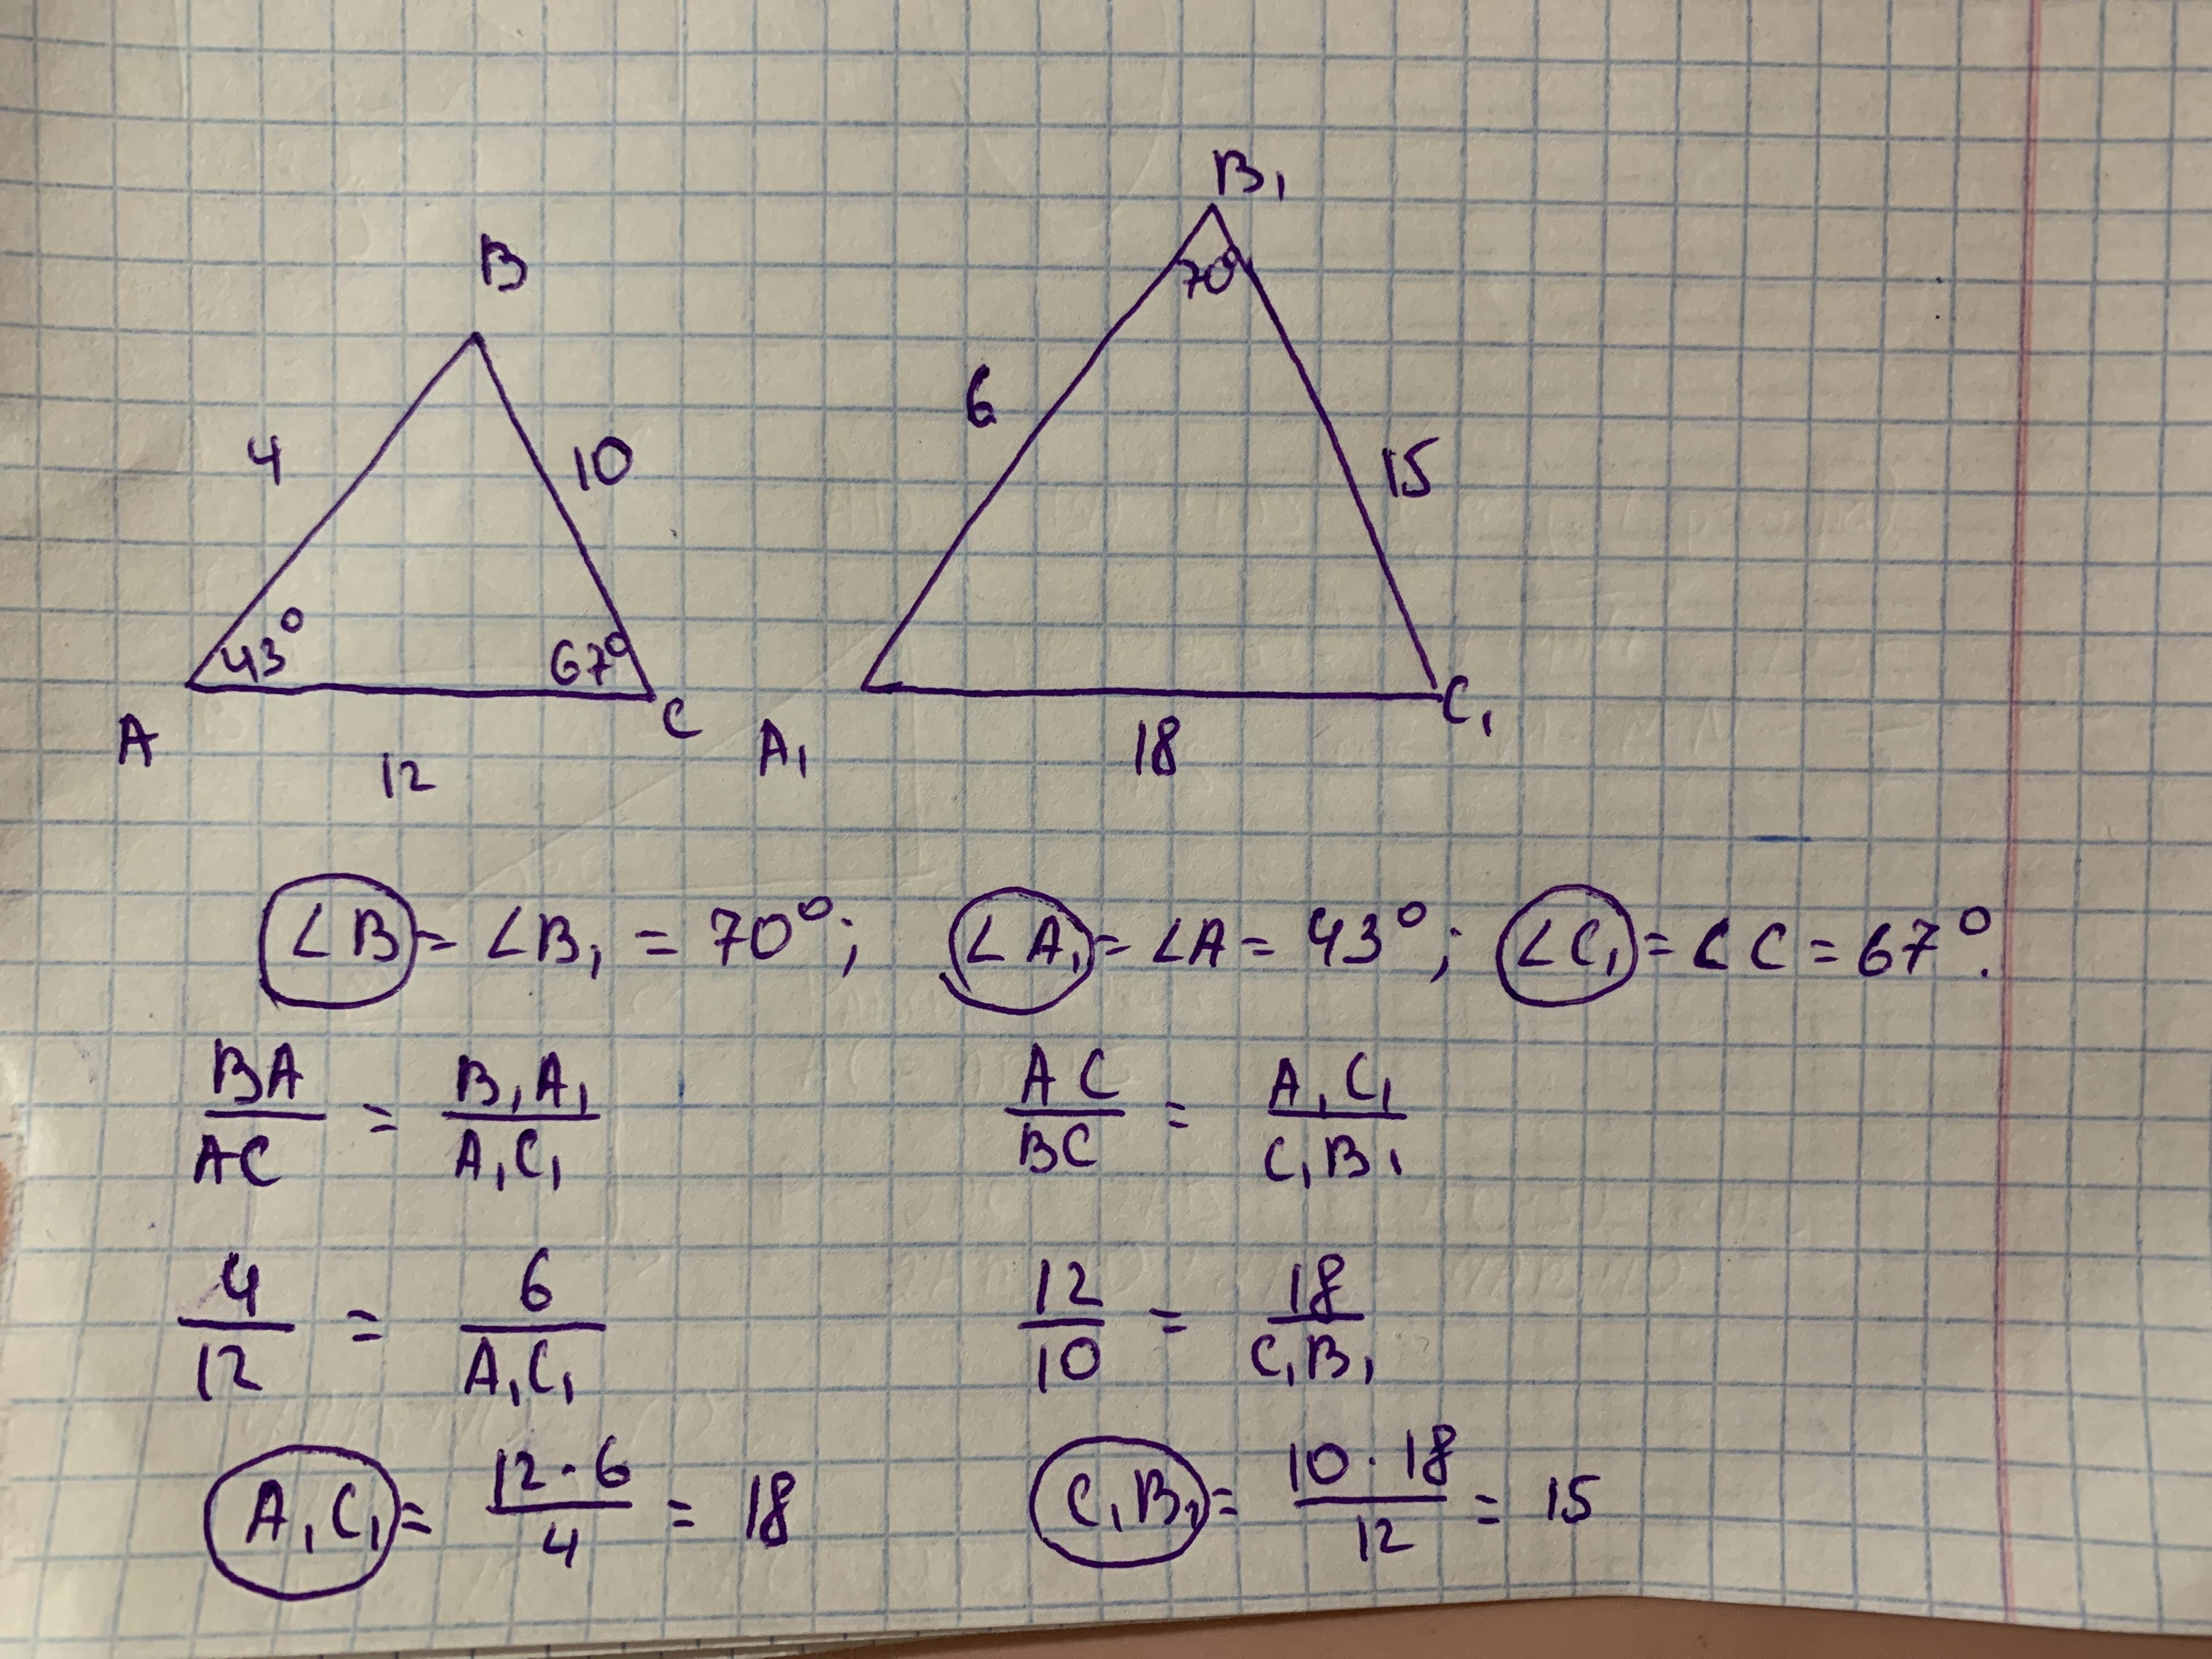 B₁
70°
B
6
4
10
15
43°
67°
A
C
A₁
C₁
12
18
∠B = ∠B₁ = 70°; ∠A₁ = ∠A = 43°; ∠C₁ = ∠C = 67°.
BA/AC = B₁A₁/A₁C₁
AC/BC = A₁C₁/C₁B₁
4/12 = 6/A₁C₁
12/10 = 18/C₁B₁
A₁C₁ = 12·6/4 = 18
C₁B₁ = 10·18/12 = 15